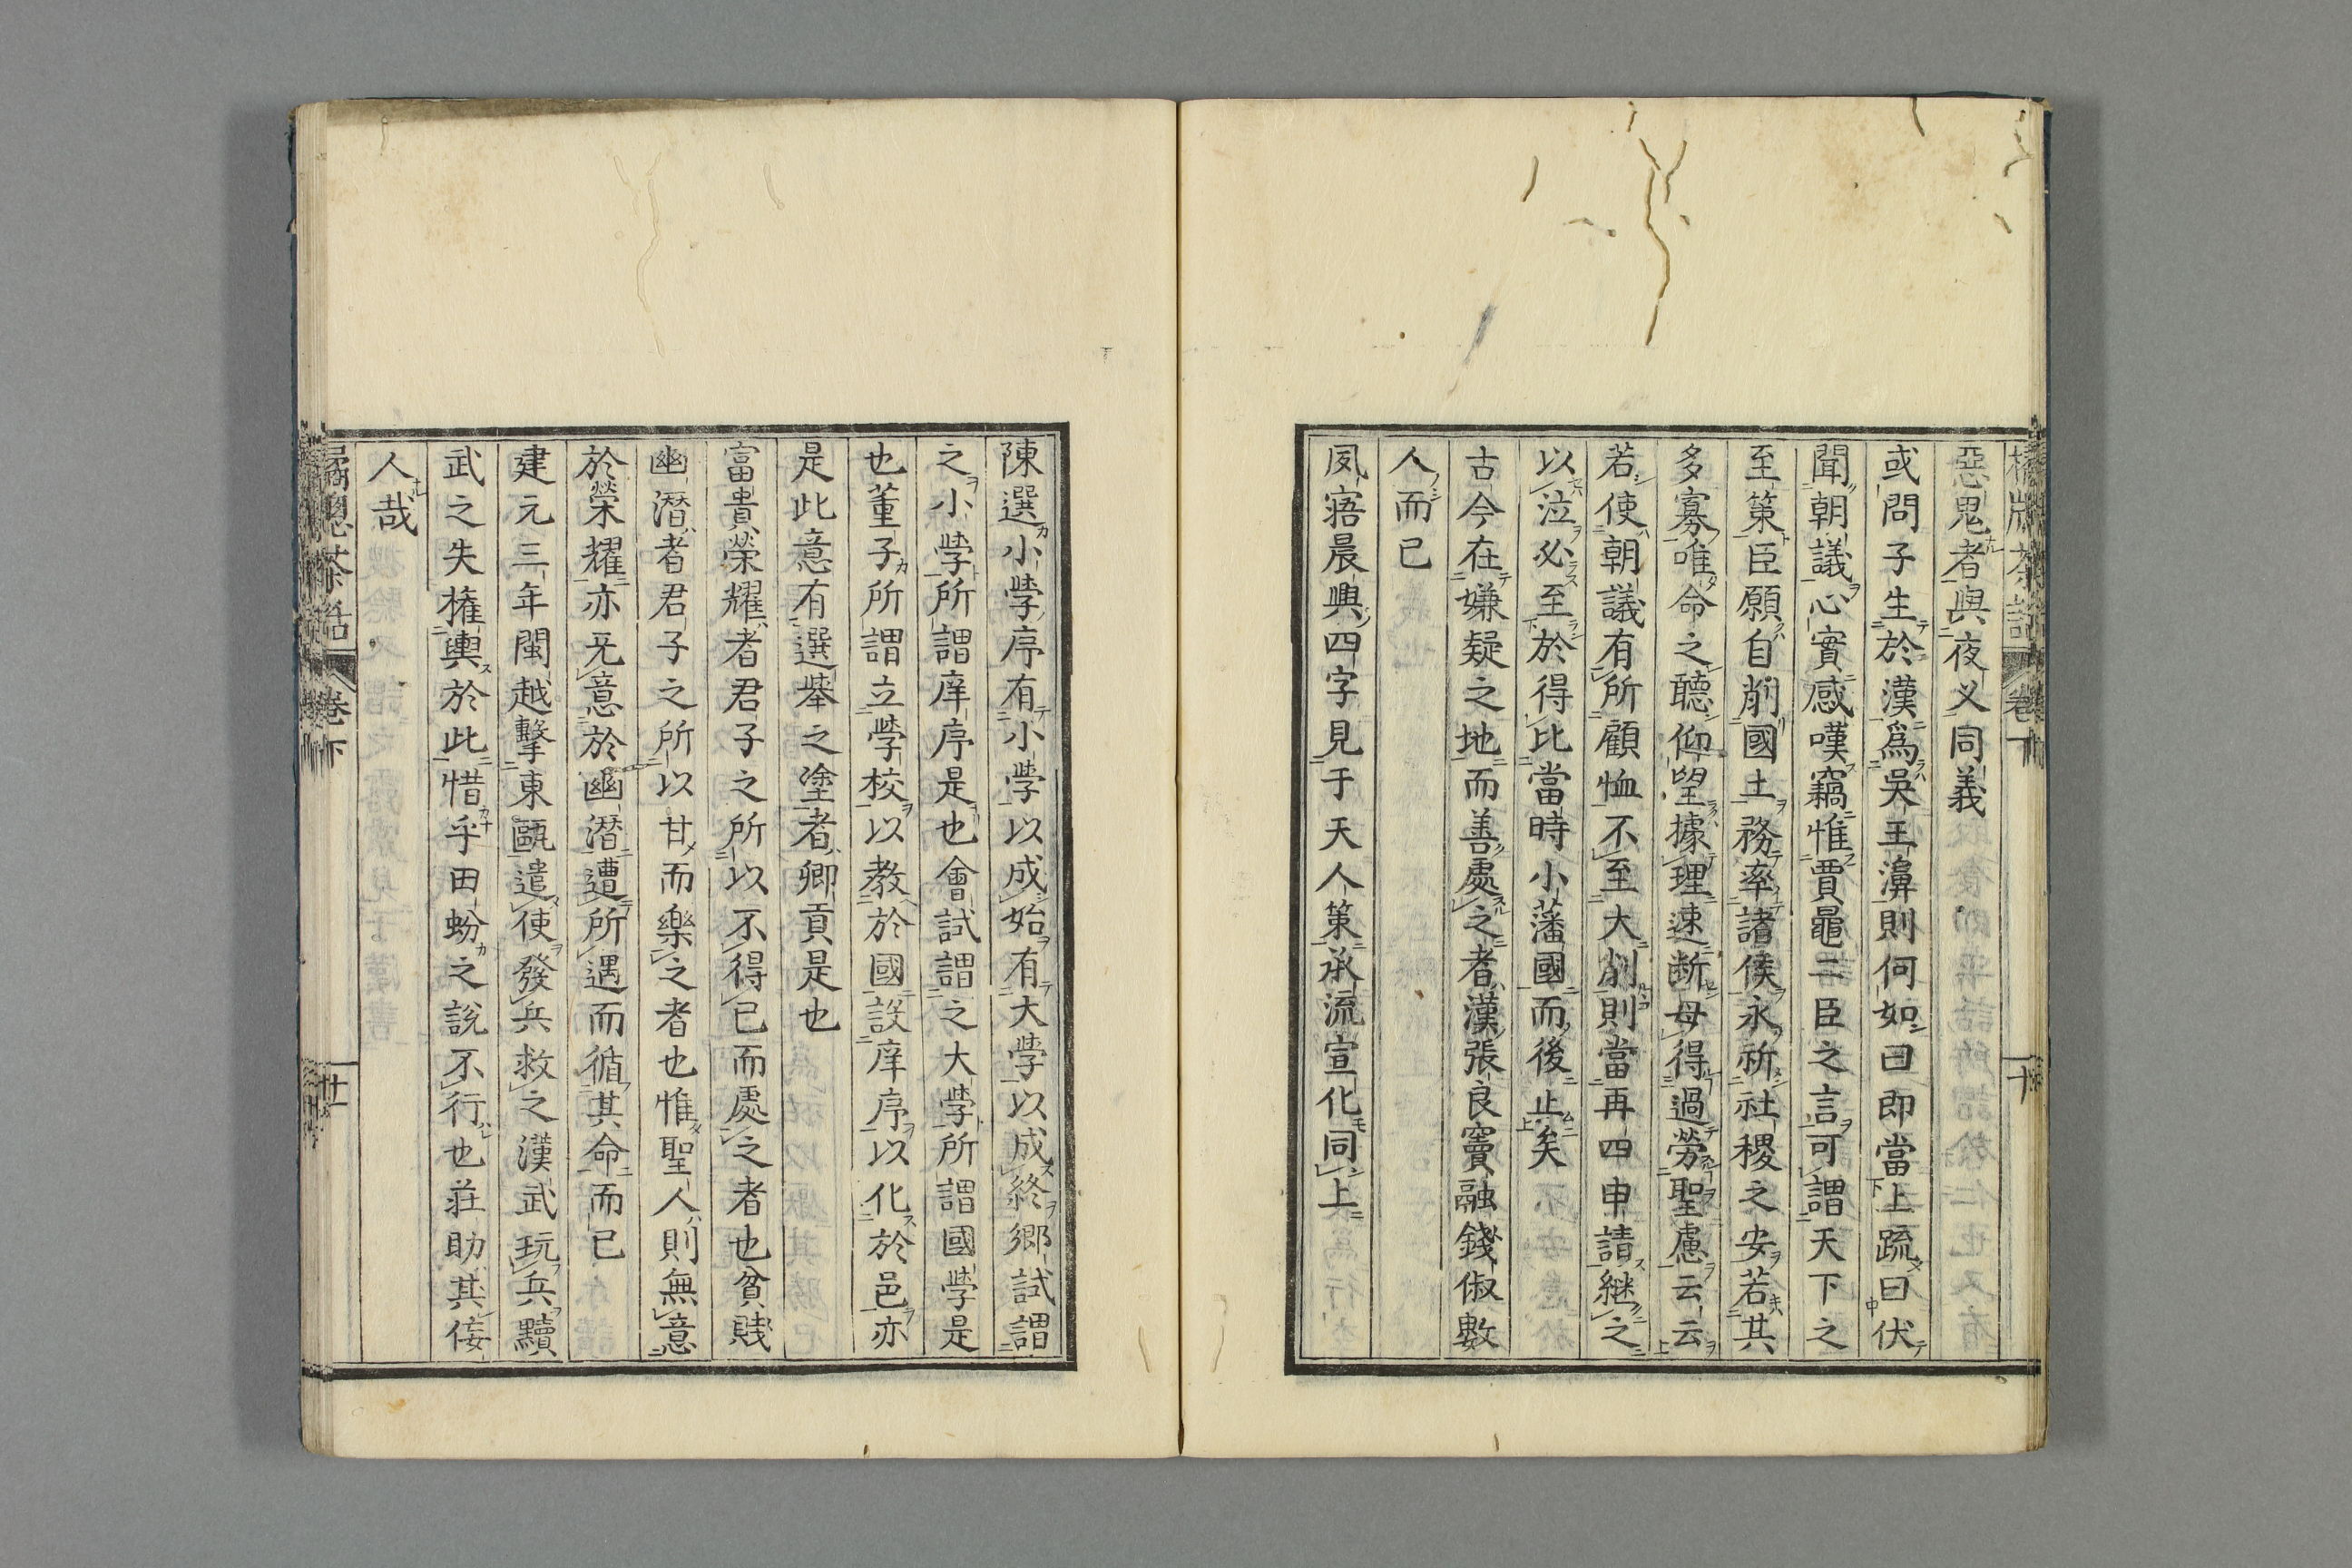 惡鬼者與夜义同義
或問子生於漢爲吳王濞則何如曰即當上疏曰伏
聞朝議心實感嘆竊惟賈鼂二臣之言可謂天下之
至策臣願自削國土務率諸侯永祈社稷之安若其
多寡唯命之聽仰望據理速断毋得過勞聖慮云云
若使朝議有所顧恤不至大削則當再四申請継之
以泣必至於得比當時小藩國而後止矣
古今在嫌疑之地而善處之者漢張良竇融錢俶數
人而已
夙寤晨興四字見于天人策承流宣化同上
陳選小學序有小學以成始有大學以成終鄉試謂
之小學所謂庠序是也會試謂之大學所謂國學是
也董子所謂立學校以教於國設庠序以化於邑亦
是此意有選舉之塗者鄉貢是也
富貴榮耀者君子之所以不得已而處之者也貧賎
幽潜者君子之所以甘而樂之者也惟聖人則無意
於榮耀亦无意於幽潜遭所遇而循其命而已
建元三年閩越擊東甌遣使發兵救之漢武玩兵黷
武之失権輿於此惜乎田蚡之説不行也荘助其侫
人哉
卷下
廿一